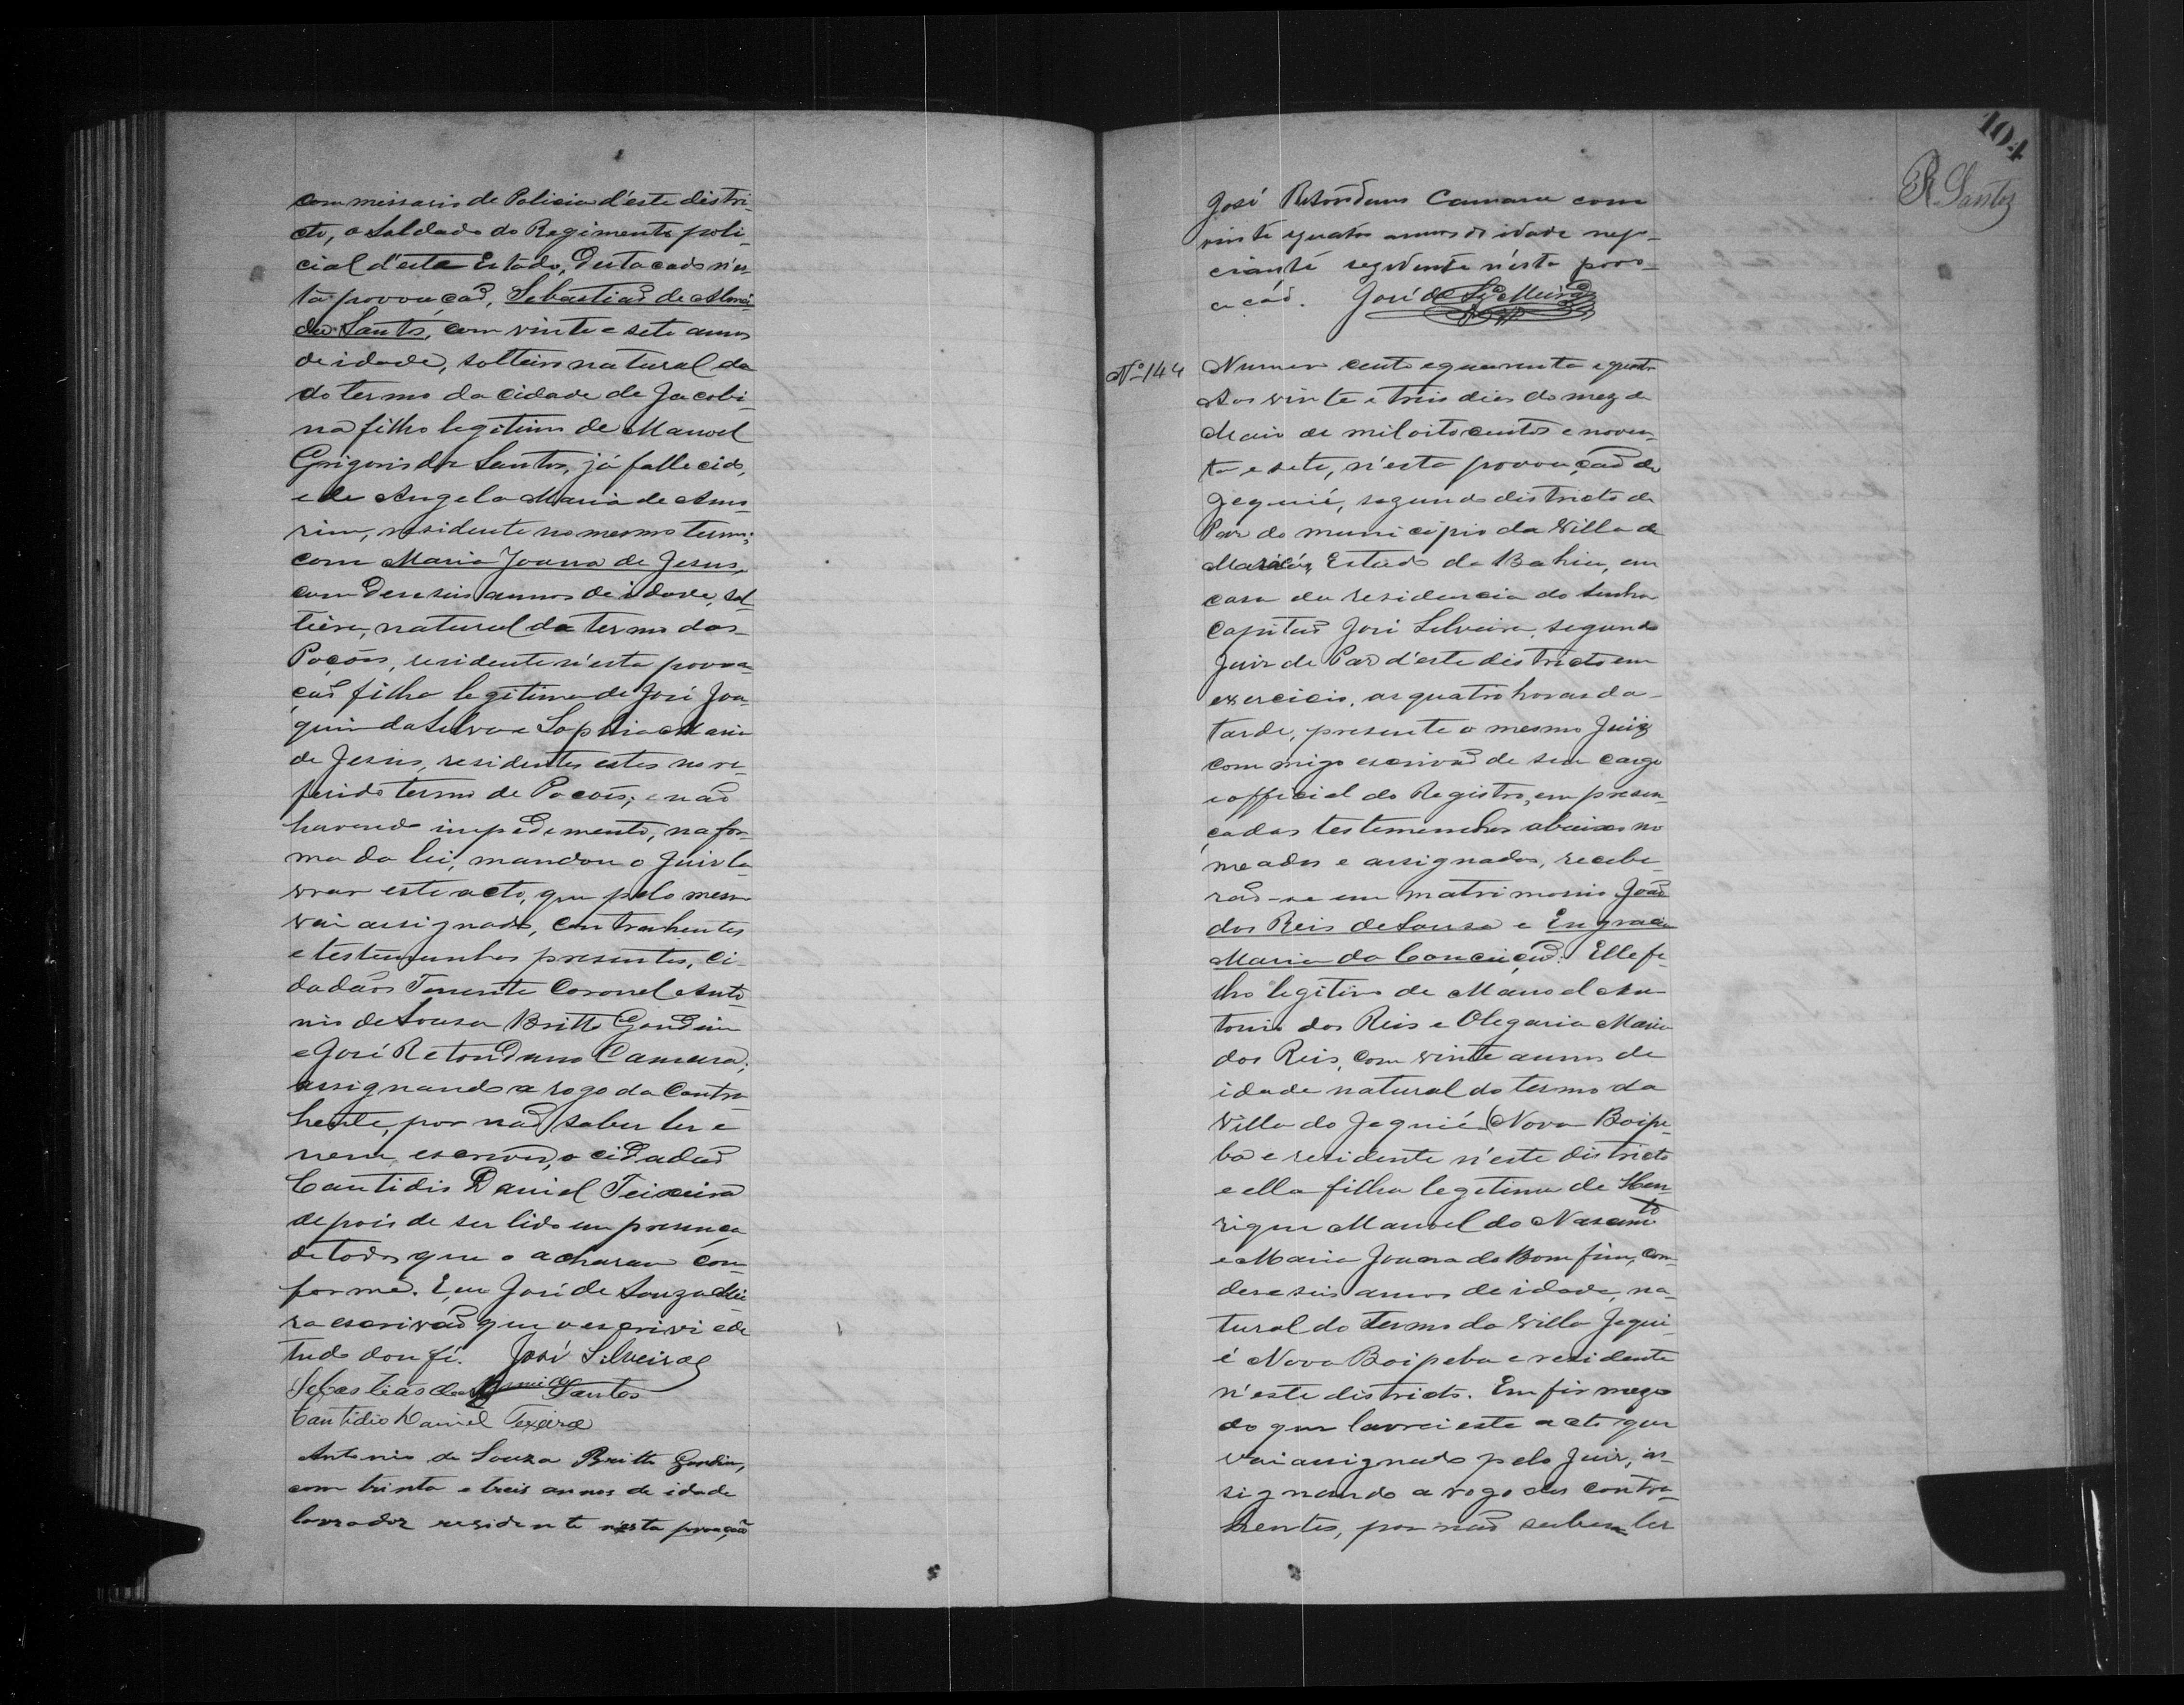 commissario de Policia d'este distri-
cto, o Soldado do Regimento poli-
cial d'este Estado, destacado n'es-
ta povoação, Sebastião de
dos Santos, com vinte e sete annos
de idade, solteiro natural da
do termo da cidade de Jacobi-
na filho legitimo de Manoel
Grigorio dos Santos, já fallecido,
e de Angela Maria de Amo-
rim, residente no mesmo termo;
com Maria Joana de Jesus,
com deseseis annos de idade, sol-
teira, natural do termo dos
Poções, residente n'esta povoa-
ção filha legitima de José Joa-
quim da Silva e Sophia Maria
de Jesus, residentes estes no re-
ferido termo de Poções; e não
havendo impedimento, na for-
ma da lei, mandou o Juiz la-
vrar este acto, que pelo mesmo
vai assignado, contrahentes
e testemunhas presentes, ci-
dadãos Tenente Coronel Anto-
nio de Sousa Britto Gondim
e José Retondano Camara;
assignando a rogo da Contra-
hente, por não saber ler e
nem escrever, o cidadão
Cantidio Daniel Teixeira
depois de ser lido em presença
de todos que o acharam con-
forme. Eu José de Souza Mei-
ra escrivão que o escrivi e de
tudo dou fé. José Silveira
Sebastião dos Santos
Cantidio Daniel Texeira
Antonio de Souza Britto Gondim,
com trinta e treis annos de idade
lavrador residente nesta povoação
104
R. Santos
José Retondano Camara com
vinte e quatro annos de idade nego-
ciante rezidente n'esta povo-
acão. José de Sza Meira
Nº 144
Numero cento e quarenta e quatro
Aos vinte e treis dias do mez de
Maio de mil oito centos e noven-
ta e sete, n'esta povoação de
Jequié, segundo districto de
Paz do municipio da Villa de
Maracás, Estado da Bahia, em
casa da residencia do Senhor
Capitão José Silveira, segundo
Juiz de Paz d'este districto em
exercicio, as quatro horas da
tarde, presente o mesmo Juiz
commigo escrivão de seu cargo
e official do Registro, em presen-
ça das testemunhas abaixo no
meadas e assignadas, recebe-
rão-se em matrimonio João
dos Reis de Sousa e Engracia
Maria da Conceição. Elle fi-
lho legitimo de Manoel An-
tonio dos Reis e Olegaria Maria
dos Reis, com vinte annos de
idade natural do termo da
Villa do Jequié (Nova Boipe-
ba e residente n'este districto
e ella filha legitima de Hen-
rique Manoel do Nascimto
e Maria Joana do Bomfim, com
deseseis annos de idade, na-
tural do termo da Villa Jequi-
é Nova Boipeba e residente
n'este districto. Em firmeza
do que lavrei este acto que
vai assignado pelo Juiz, as-
signando a rogo dos contra-
hentes, por não saberem ler